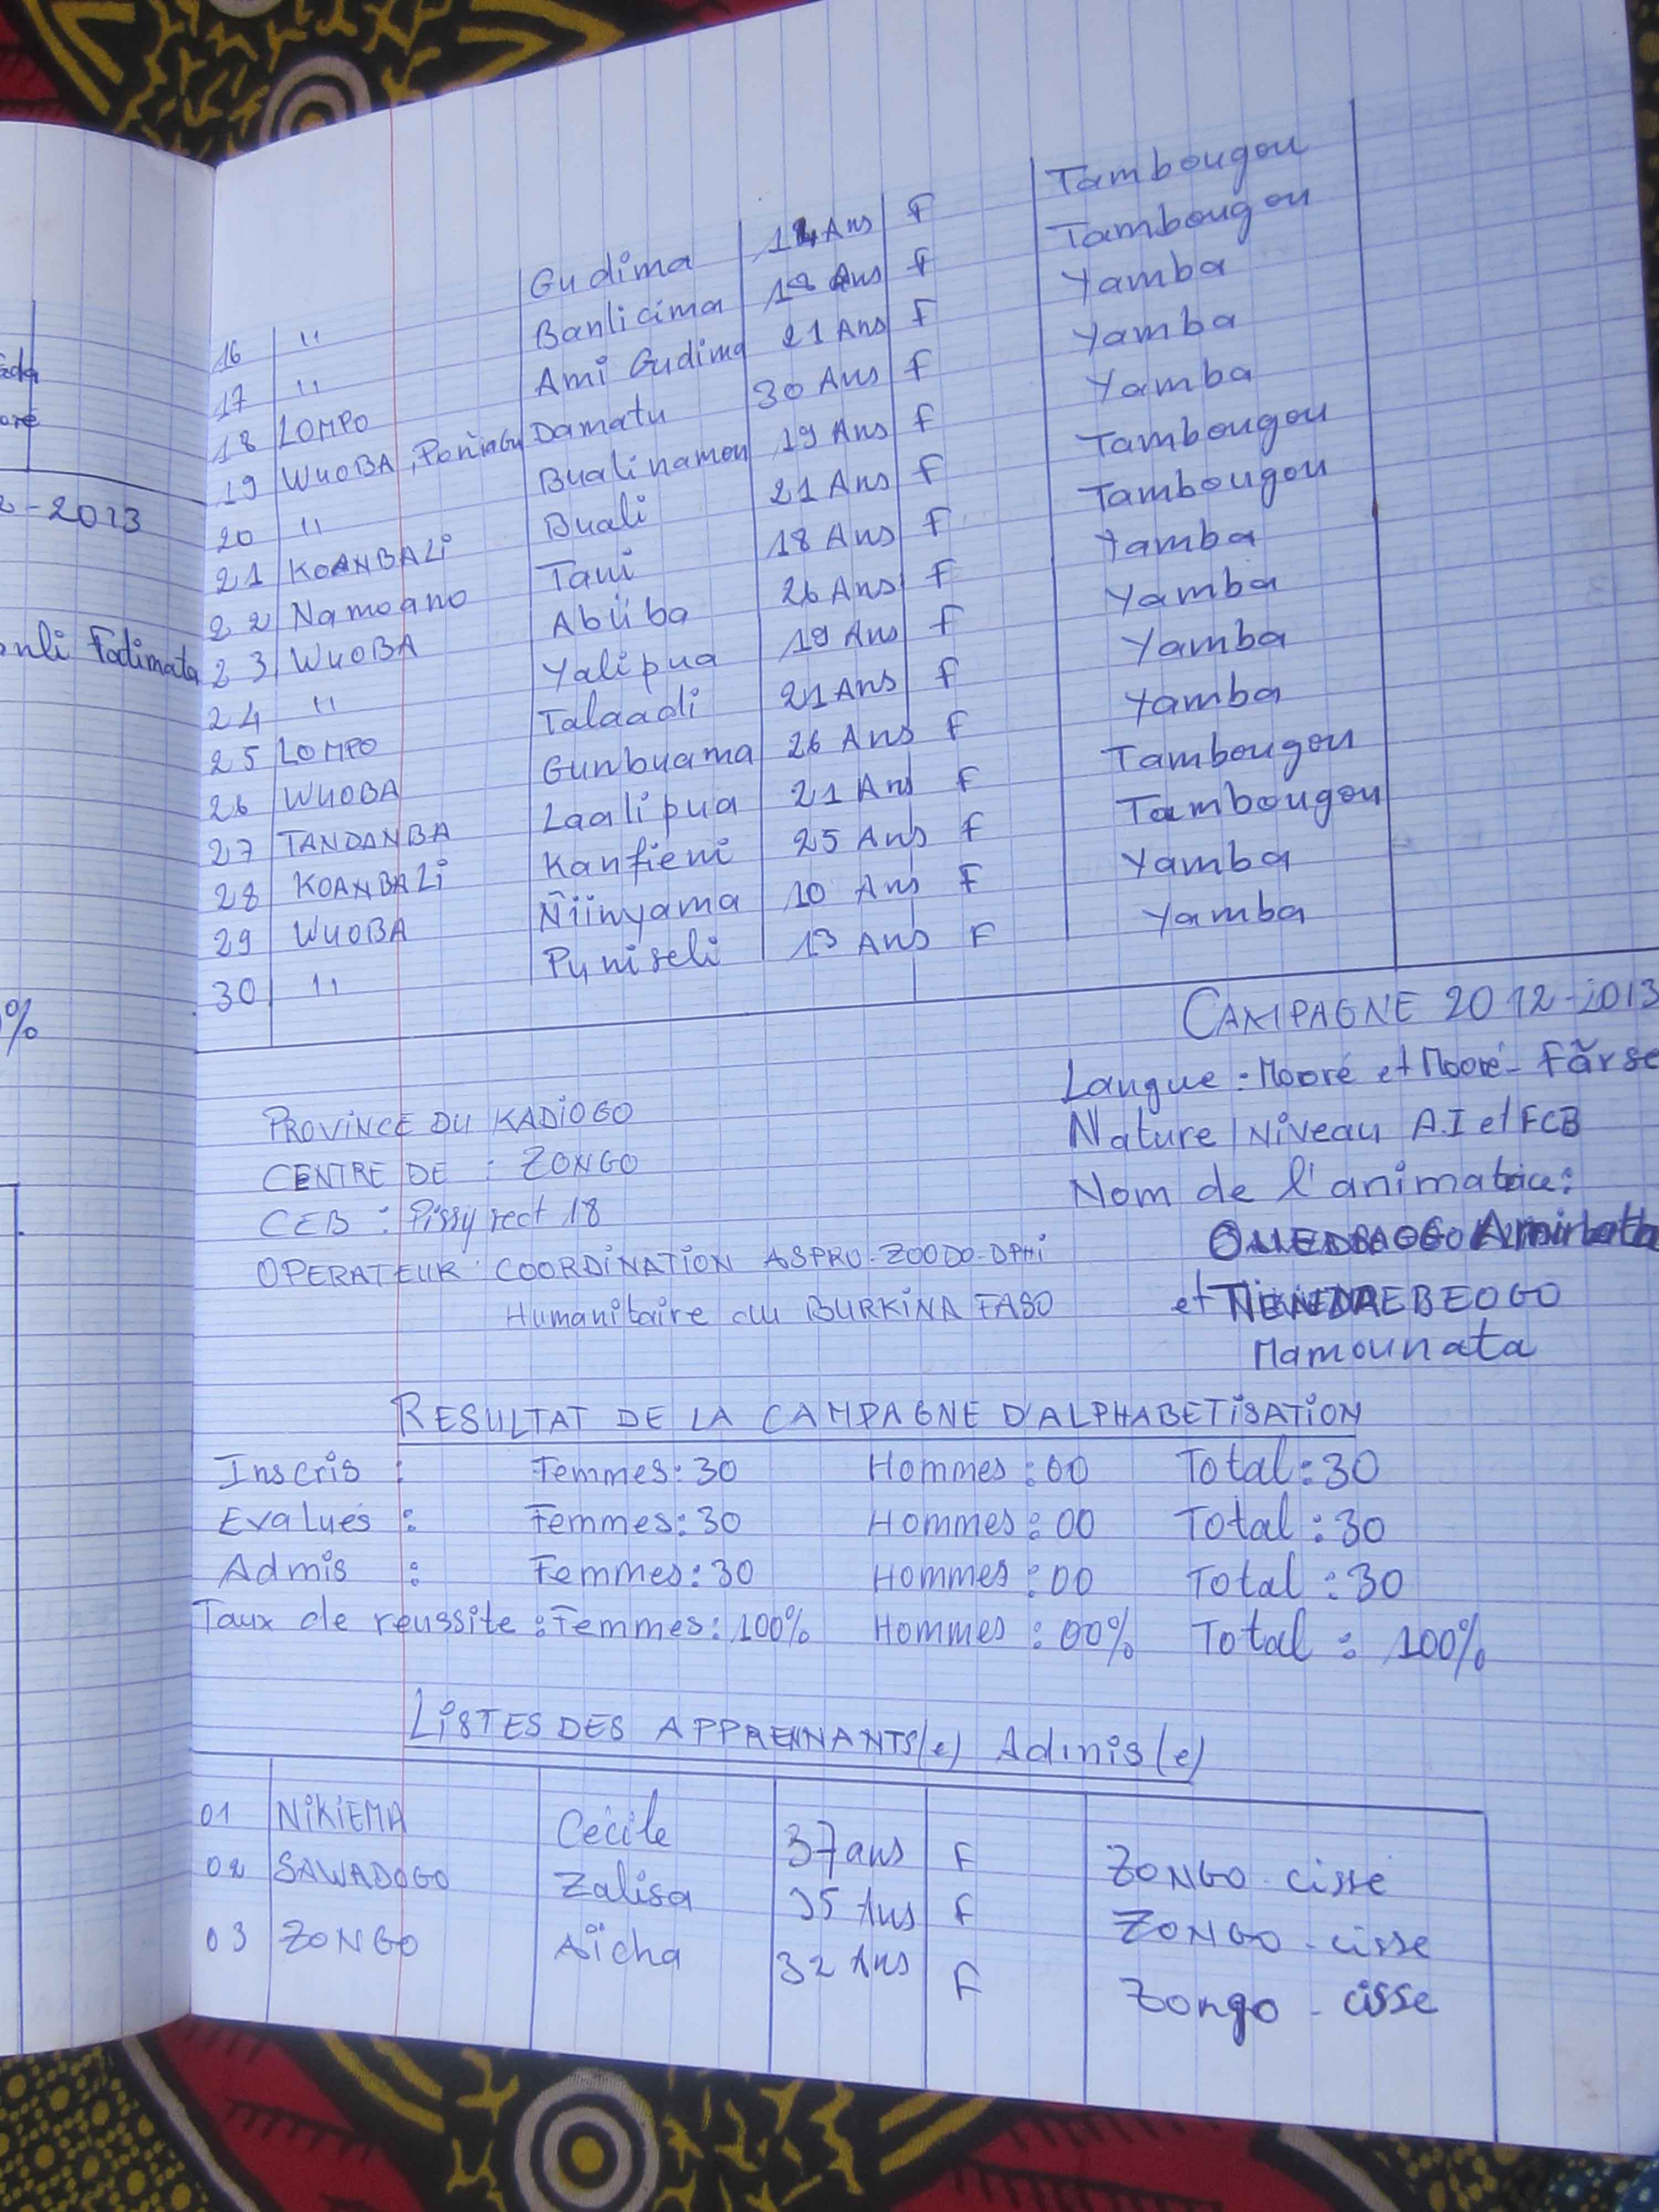 2-2013
nli Fatimata
%
16 " Gudima 14 Ans F Tambougou
17 " Banlicima 18 Ans F Tambougou
18 LOMPO Ami Gudima 21 Ans F Yamba
19 WUOBA, Poñiabu Damatu 30 Ans F Yamba
20 " Bualinamon 19 Ans F Yamba
21 KOANBALi Buali 21 Ans F Tambougou
22 Namoano Tani 18 Ans F Tambougou
23 WUOBA Abiiba 26 Ans F Yamba
24 " Yalipua 19 Ans F Yamba
25 LOMPO Talaadi 21 Ans F Yamba
26 WUOBA Gunbuama 26 Ans F Yamba
27 TANDANBA Laalipua 21 Ans F Tambougou
28 KOANBALi Kanfieni 25 Ans F Tambougou
29 WUOBA Ñiinyama 10 Ans F Yamba
30 " Pyniseli 13 Ans F Yamba
CAMPAGNE 2012-2013
Langue : Mooré et Mooré- Fãrse
PROViNCE DU KADiOGO
Nature/Niveau A.I et FCB
CENTRE DE : ZONGO
Nom de l'animatrice :
CEB : Pissy sect 18
OUEDRAOGO
OPERATEUR : COORDiNATiON ASPRO-ZOODO-DPHi
et TIENDREBEOGO
Humanitaire au BURKiNA FASO
Mamounata
RESULTAT DE LA CAMPAGNE D'ALPHABETiSATiON
Inscris : Femmes : 30 Hommes : 00 Total : 30
Evalués : Femmes : 30 Hommes : 00 Total : 30
Admis : Femmes : 30 Hommes : 00 Total : 30
Taux de reussite : Femmes : 100% Hommes : 00% Total : 100%
LiSTES DES APPRENNANTS(e) Admis(e)
01 NiKiEMA Cécile 37 ans F ZONGO-cisse
02 SAWADOGO Zalisa 35 Ans F ZONGO-cisse
03 ZONGO Aïcha 32 Ans F Zongo-cisse